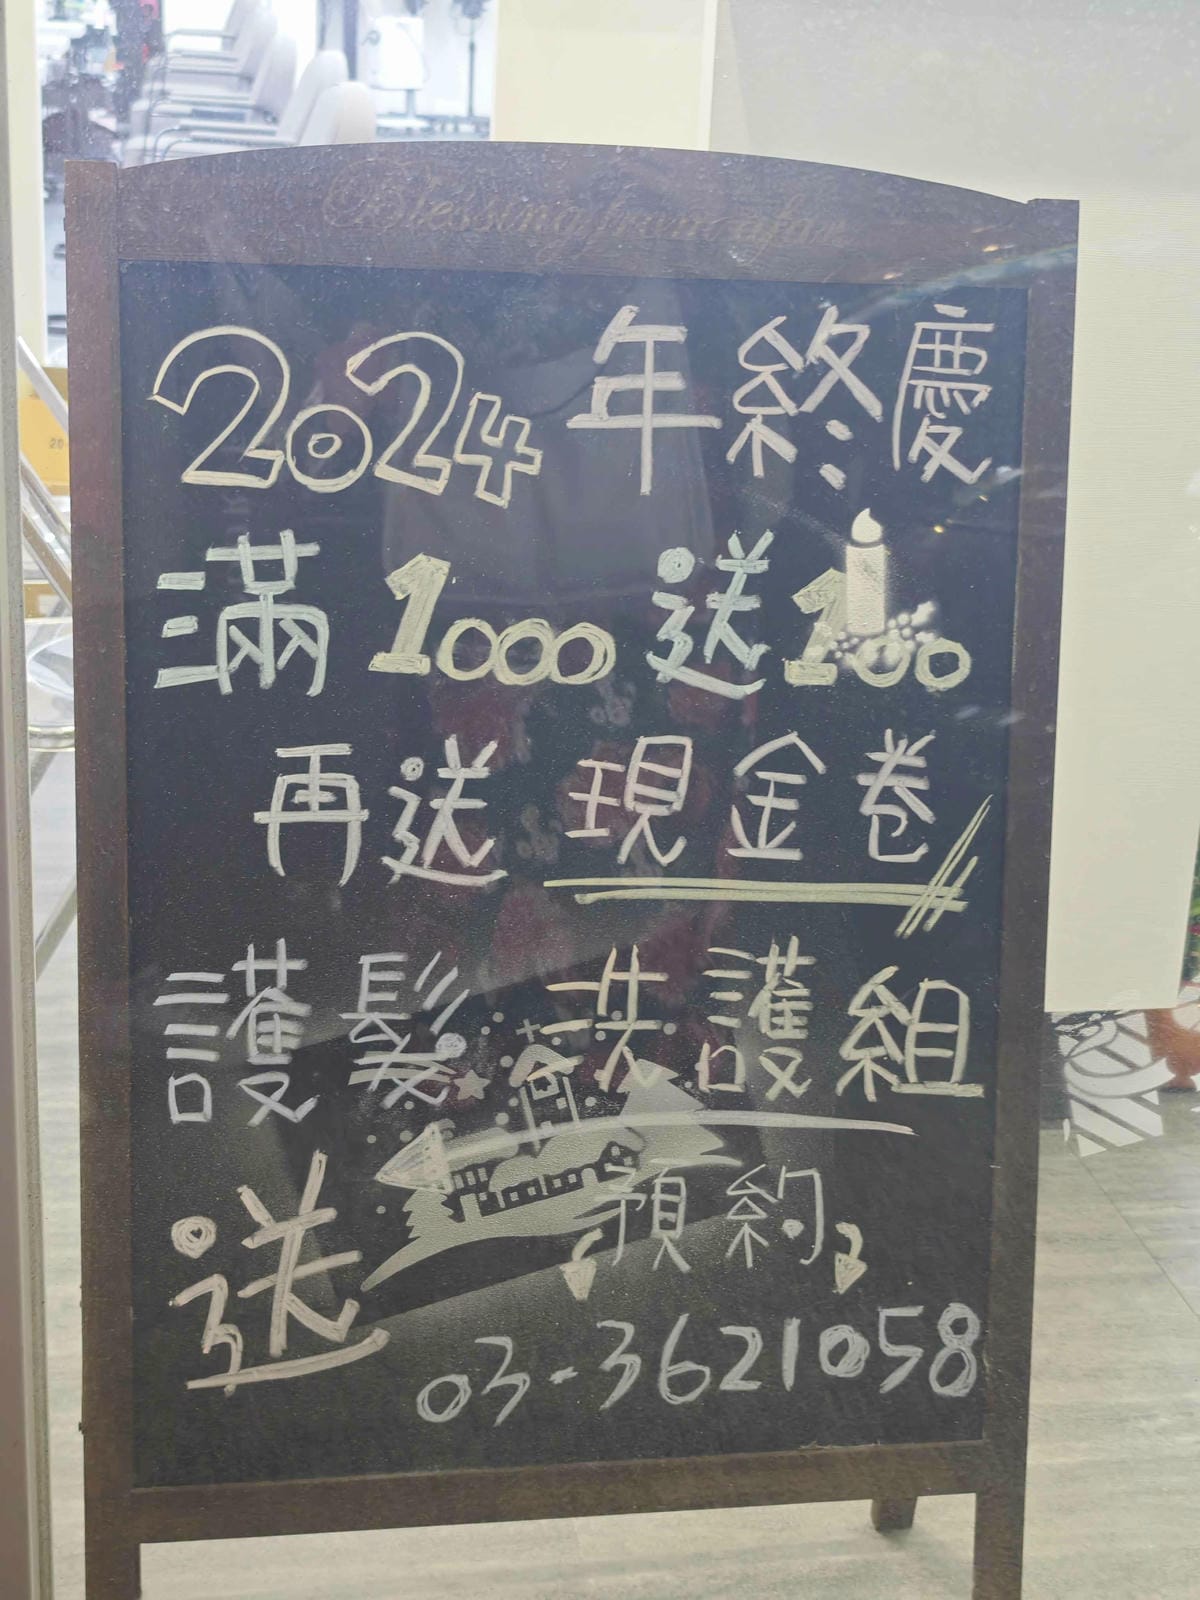 Blessing from afar
2024 年終慶
滿 1000 送 100
再送 現金卷
護髮 洗護組
送
預約
03-3621058